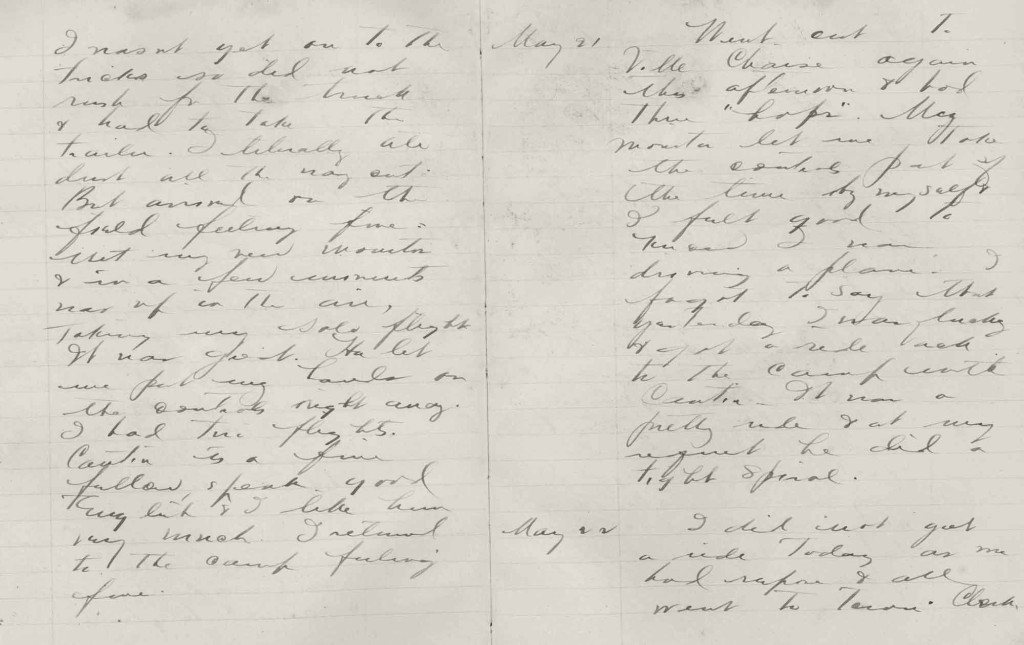 I wasnt yet on to the
tricks so did not
rush for the truck
& had to take the
trailer. I literally ate
dust all the way out.
But arrived on the
field feeling fine.
Met my new monitor
& in a few moments
was up in the air,
Taking my solo flight
It was great. He let
me put my hands on
the controls right away.
I had two flights.
Cautin is a fine
fellow, speak good
English & I like him
very much. I returned
to the camp feeling
fine.
May 21 Went out to
Ville Chauve again
this afternoon & had
three "hops". My
monitor let me take
the controls part of
the time by myself &
I felt good to
know I was
driving a plane. I
forgot to say that
yesterday I was lucky
& got a ride back
to the camp with
Cautin. It was a
pretty ride & at my
request he did a
tight spiral.
May 22 I did not get
a ride today as we
had repose & all
went to Town.